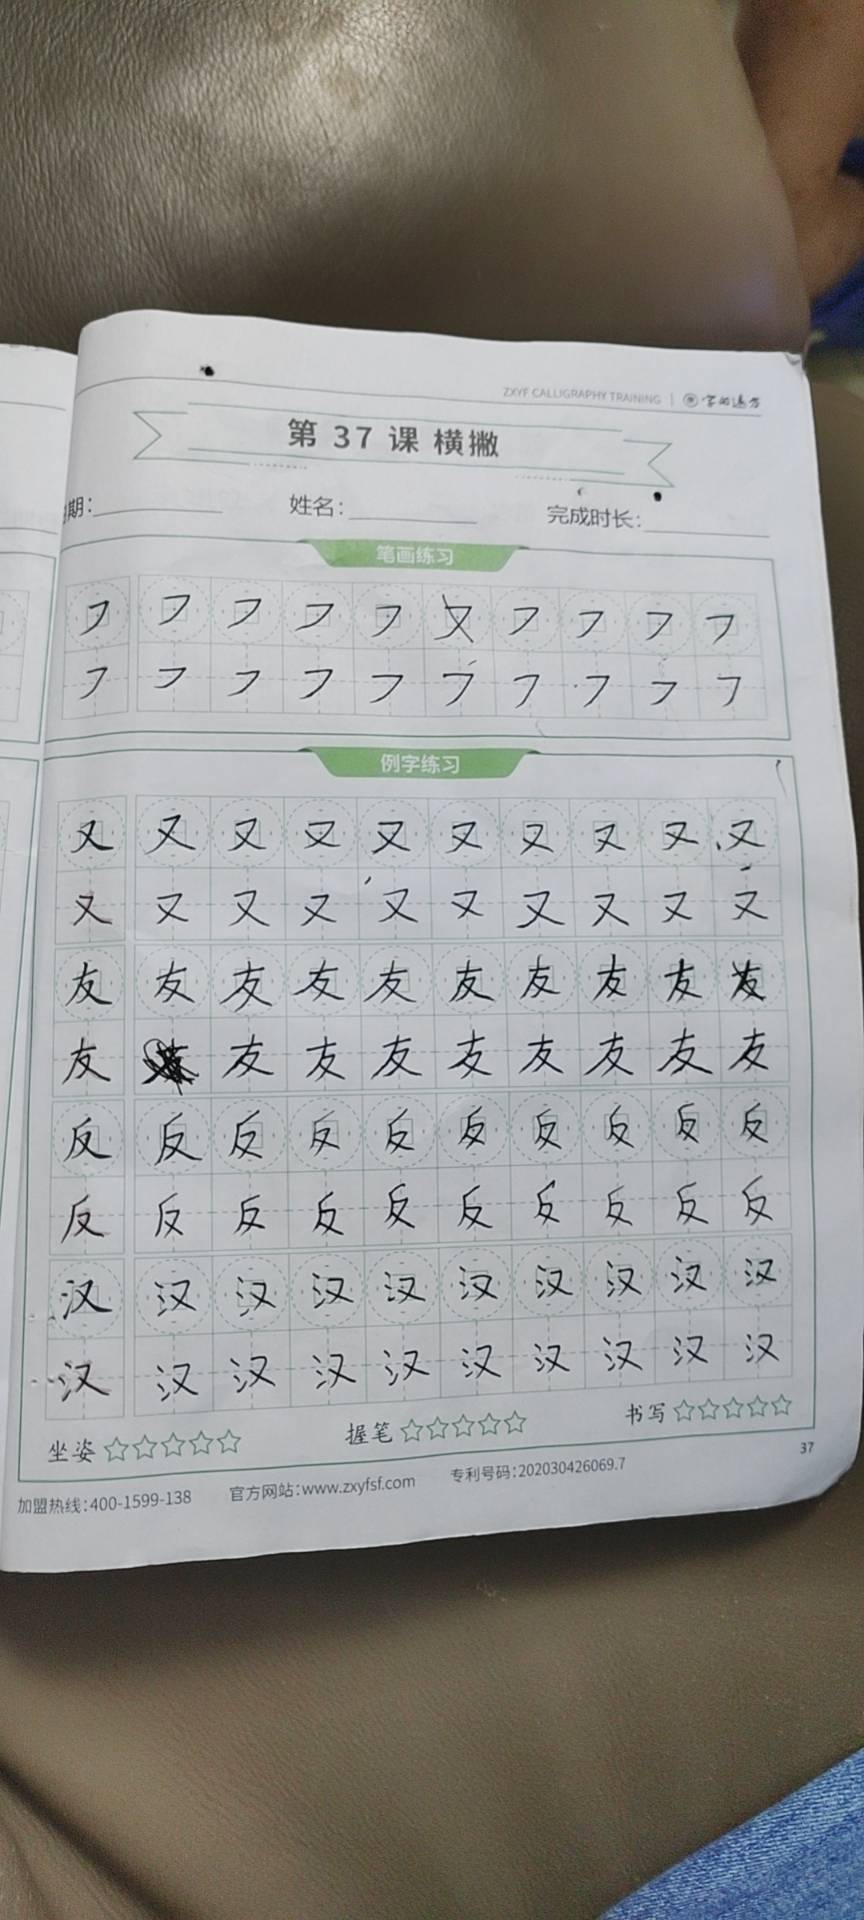 ZXYF CALLIGRAPHY TRAINING
第 37 课 横撇
期: 姓名: 完成时长:
笔画练习
㇇ ㇇ ㇇ ㇇ ㇇ 又 ㇇ ㇇ ㇇ ㇇
㇇ ㇇ ㇇ ㇇ ㇇ ㇇ ㇇ ㇇ ㇇ ㇇
例字练习
又 又 又 又 又 又 又 又 又 又
又 又 又 又 又 又 又 又 又 又
友 友 友 友 友 友 友 友 友 友
友 友 友 友 友 友 友 友 友
反 反 反 反 反 反 反 反 反 反
反 反 反 反 反 反 反 反 反 反
汉 汉 汉 汉 汉 汉 汉 汉 汉 汉
汉 汉 汉 汉 汉 汉 汉 汉 汉 汉
坐姿☆☆☆☆☆ 握笔☆☆☆☆☆ 书写☆☆☆☆☆
加盟热线:400-1599-138 官方网站:www.zxyfsf.com 专利号码:202030426069.7 37